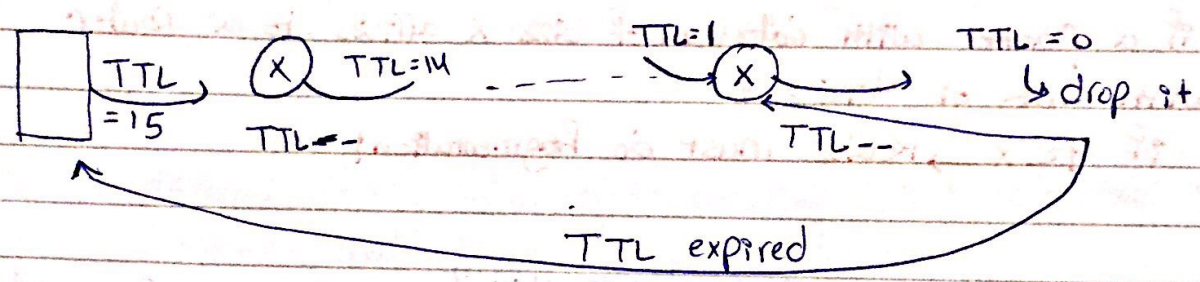 TTL = 15
X
TTL=14
TTL--
TTL=1
X
TTL--
TTL = 0
↳ drop it
TTL expired